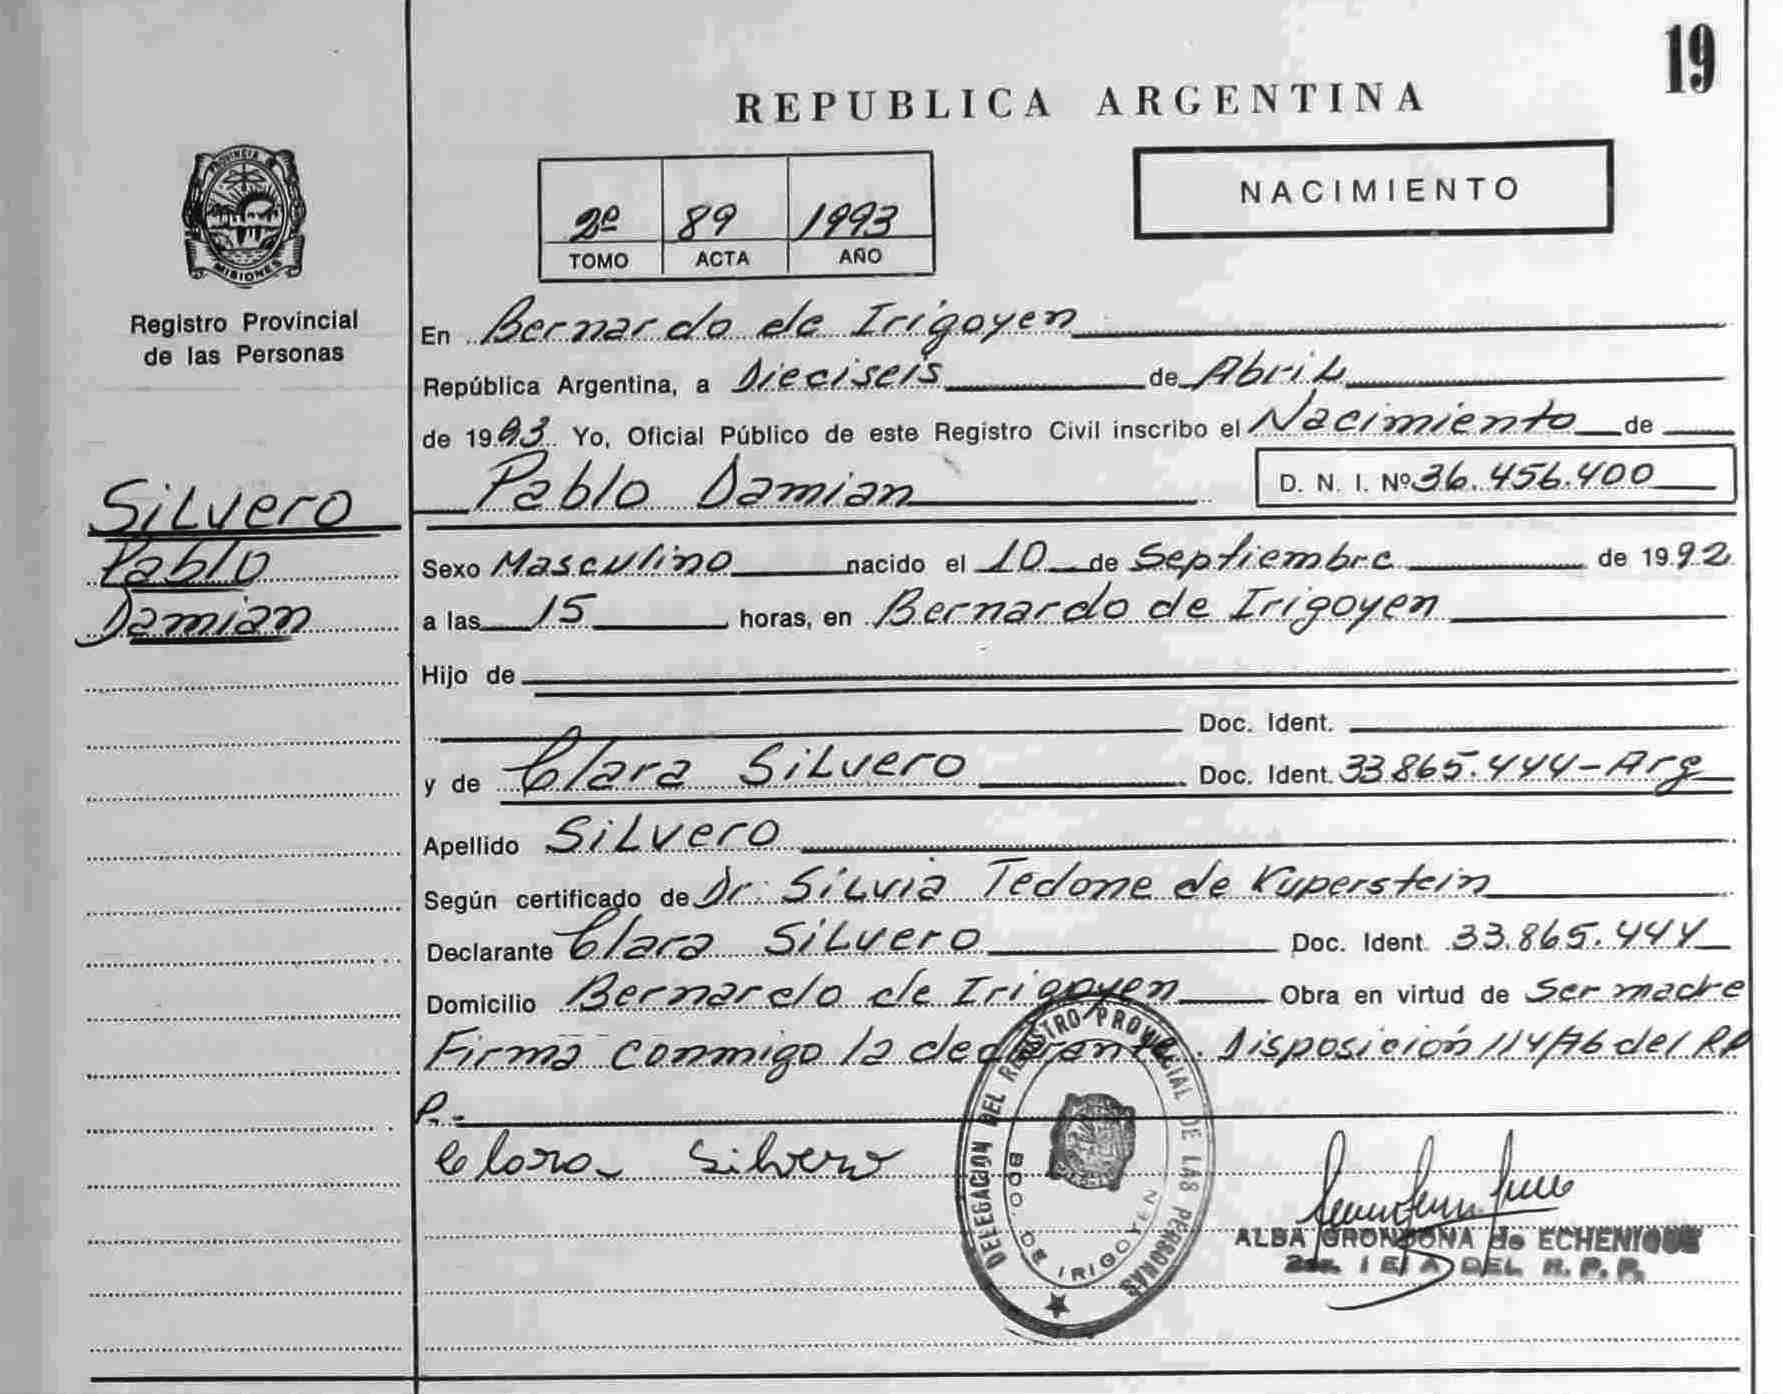 19
REPUBLICA ARGENTINA
PROVINCIA
MISIONES
Registro Provincial
de las Personas
2º 89 1993
TOMO ACTA AÑO
NACIMIENTO
En Bernardo de Irigoyen
República Argentina, a Dieciseis de Abril
de 1993 Yo, Oficial Público de este Registro Civil inscribo el Nacimiento de
Silvero
Pablo
Damian
Pablo Damian D. N. I. Nº 36.456.400
Sexo Masculino nacido el 10 de Septiembre de 1992
a las 15 horas, en Bernardo de Irigoyen
Hijo de
Doc. Ident.
y de Clara Silvero Doc. Ident. 33.865.444-Arg
Apellido Silvero
Según certificado de Dr. Silvia Tedone de Kuperstein
Declarante Clara Silvero Doc. Ident. 33.865.444
Domicilio Bernardo de Irigoyen Obra en virtud de Ser madre
Firma conmigo la declarante. Disposición 114/76 del R.P
P.-
Clara Silvero
DELEGACION DEL REGISTRO PROVINCIAL DE LAS PERSONAS
BDO. DE IRIGOYEN
ALBA GRONDONA de ECHENIQUE
DEL R. P. P.